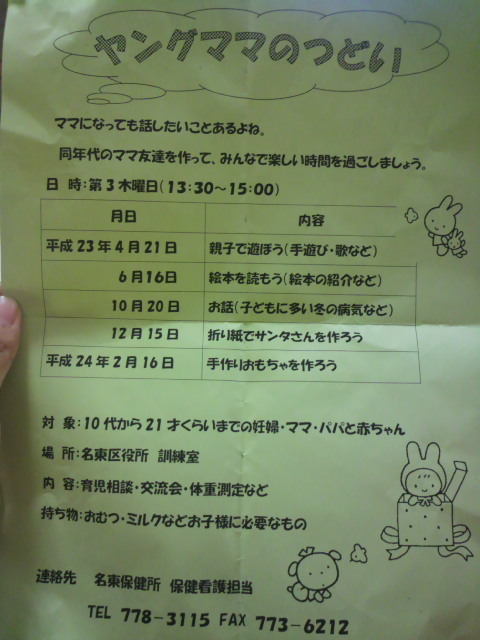 ヤングママのつどい
ママになっても話したいことあるよね。
同年代のママ友達を作って、みんなで楽しい時間を過ごしましょう。
日 時:第3木曜日(13:30~15:00)
月日 内容
平成23年4月21日 親子で遊ぼう(手遊び・歌など)
6月16日 絵本を読もう(絵本の紹介など)
10月20日 お話(子どもに多い冬の病気など)
12月15日 折り紙でサンタさんを作ろう
平成24年2月16日 手作りおもちゃを作ろう
対 象:10代から21才くらいまでの妊婦・ママ・パパと赤ちゃん
場 所:名東区役所 訓練室
内 容:育児相談・交流会・体重測定など
持ち物:おむつ・ミルクなどお子様に必要なもの
連絡先 名東保健所 保健看護担当
TEL 778-3115 FAX 773-6212